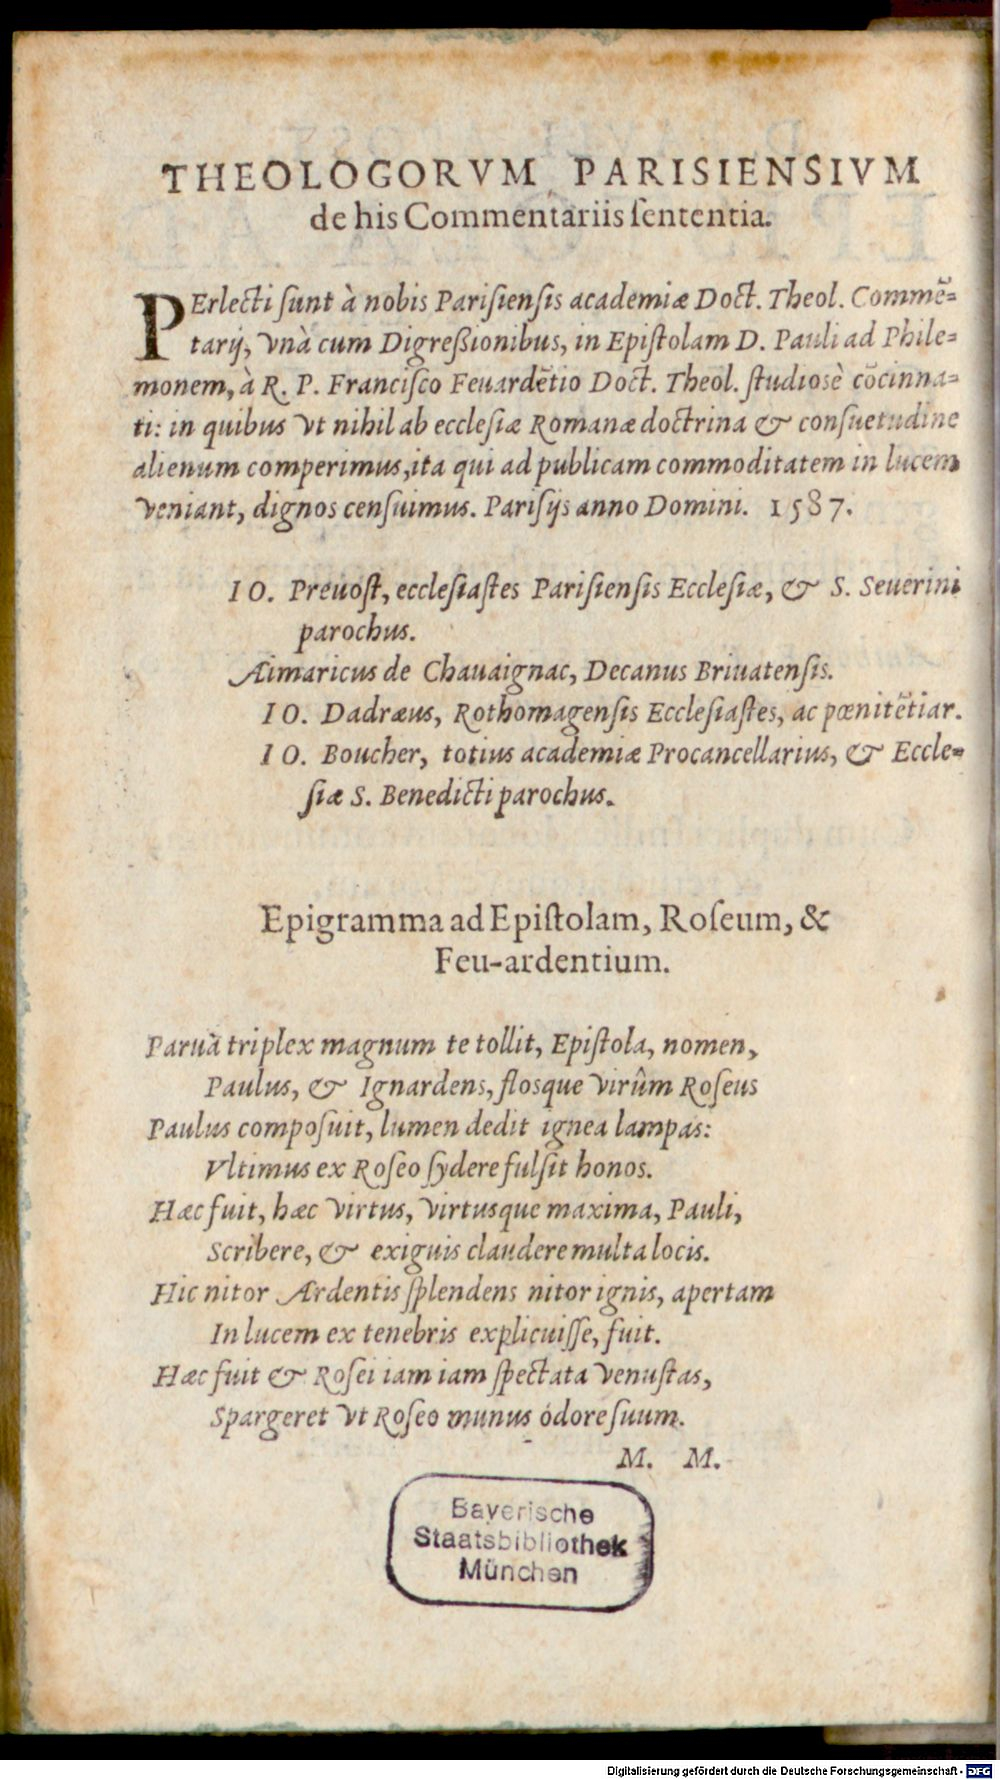 THEOLOGORVM PARISIENSIVM
de his Commentariis ſententia.
PErlecti ſunt à nobis Pariſienſis academiæ Doct. Theol. Commē-
tarij, vnà cum Digreßionibus, in Epiſtolam D. Pauli ad Phile-
monem, à R. P. Franciſco Feuardētio Doct. Theol. ſtudiosè cōcinna-
ti: in quibus vt nihil ab eccleſiæ Romanæ doctrina & conſuetudine
alienum comperimus, ita qui ad publicam commoditatem in lucem
veniant, dignos cenſuimus. Pariſijs anno Domini. 1587.
IO. Preuoſt, eccleſiaſtes Pariſienſis Eccleſiæ, & S. Seuerini
parochus.
Æimaricus de Chauaignac, Decanus Briuatenſis.
IO. Dadræus, Rothomagenſis Eccleſiaſtes, ac pœnitētiar.
IO. Boucher, totius academiæ Procancellarius, & Eccle-
ſiæ S. Benedicti parochus.
Epigramma ad Epiſtolam, Roſeum, &
Feu-ardentium.
Paruā triplex magnum te tollit, Epiſtola, nomen,
Paulus, & Ignardens, floſque virûm Roſeus
Paulus compoſuit, lumen dedit ignea lampas:
Vltimus ex Roſeo ſydere fulſit honos.
Hæc fuit, hæc virtus, virtuſque maxima, Pauli,
Scribere, & exiguis claudere multa locis.
Hic nitor Ærdentis ſplendens nitor ignis, apertam
In lucem ex tenebris explicuiſſe, fuit.
Hæc fuit & Roſei iam iam ſpectata venuſtas,
Spargeret vt Roſeo munus odore ſuum.
M. M.
Bayerische
Staatsbibliothek
München
Digitalisierung gefördert durch die Deutsche Forschungsgemeinschaft - DFG